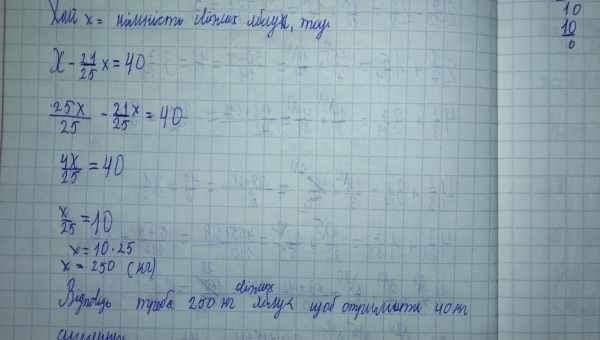 Хай x = кількість свіжих яблук, тоді
10
10
0
X - 21/25 x = 40
25x/25 - 21/25 x = 40
4x/25 = 40
x/25 = 10
x = 10 · 25
x = 250 (кг)
Відповідь треба 250 кг свіжих яблук щоб отримати 40 кг